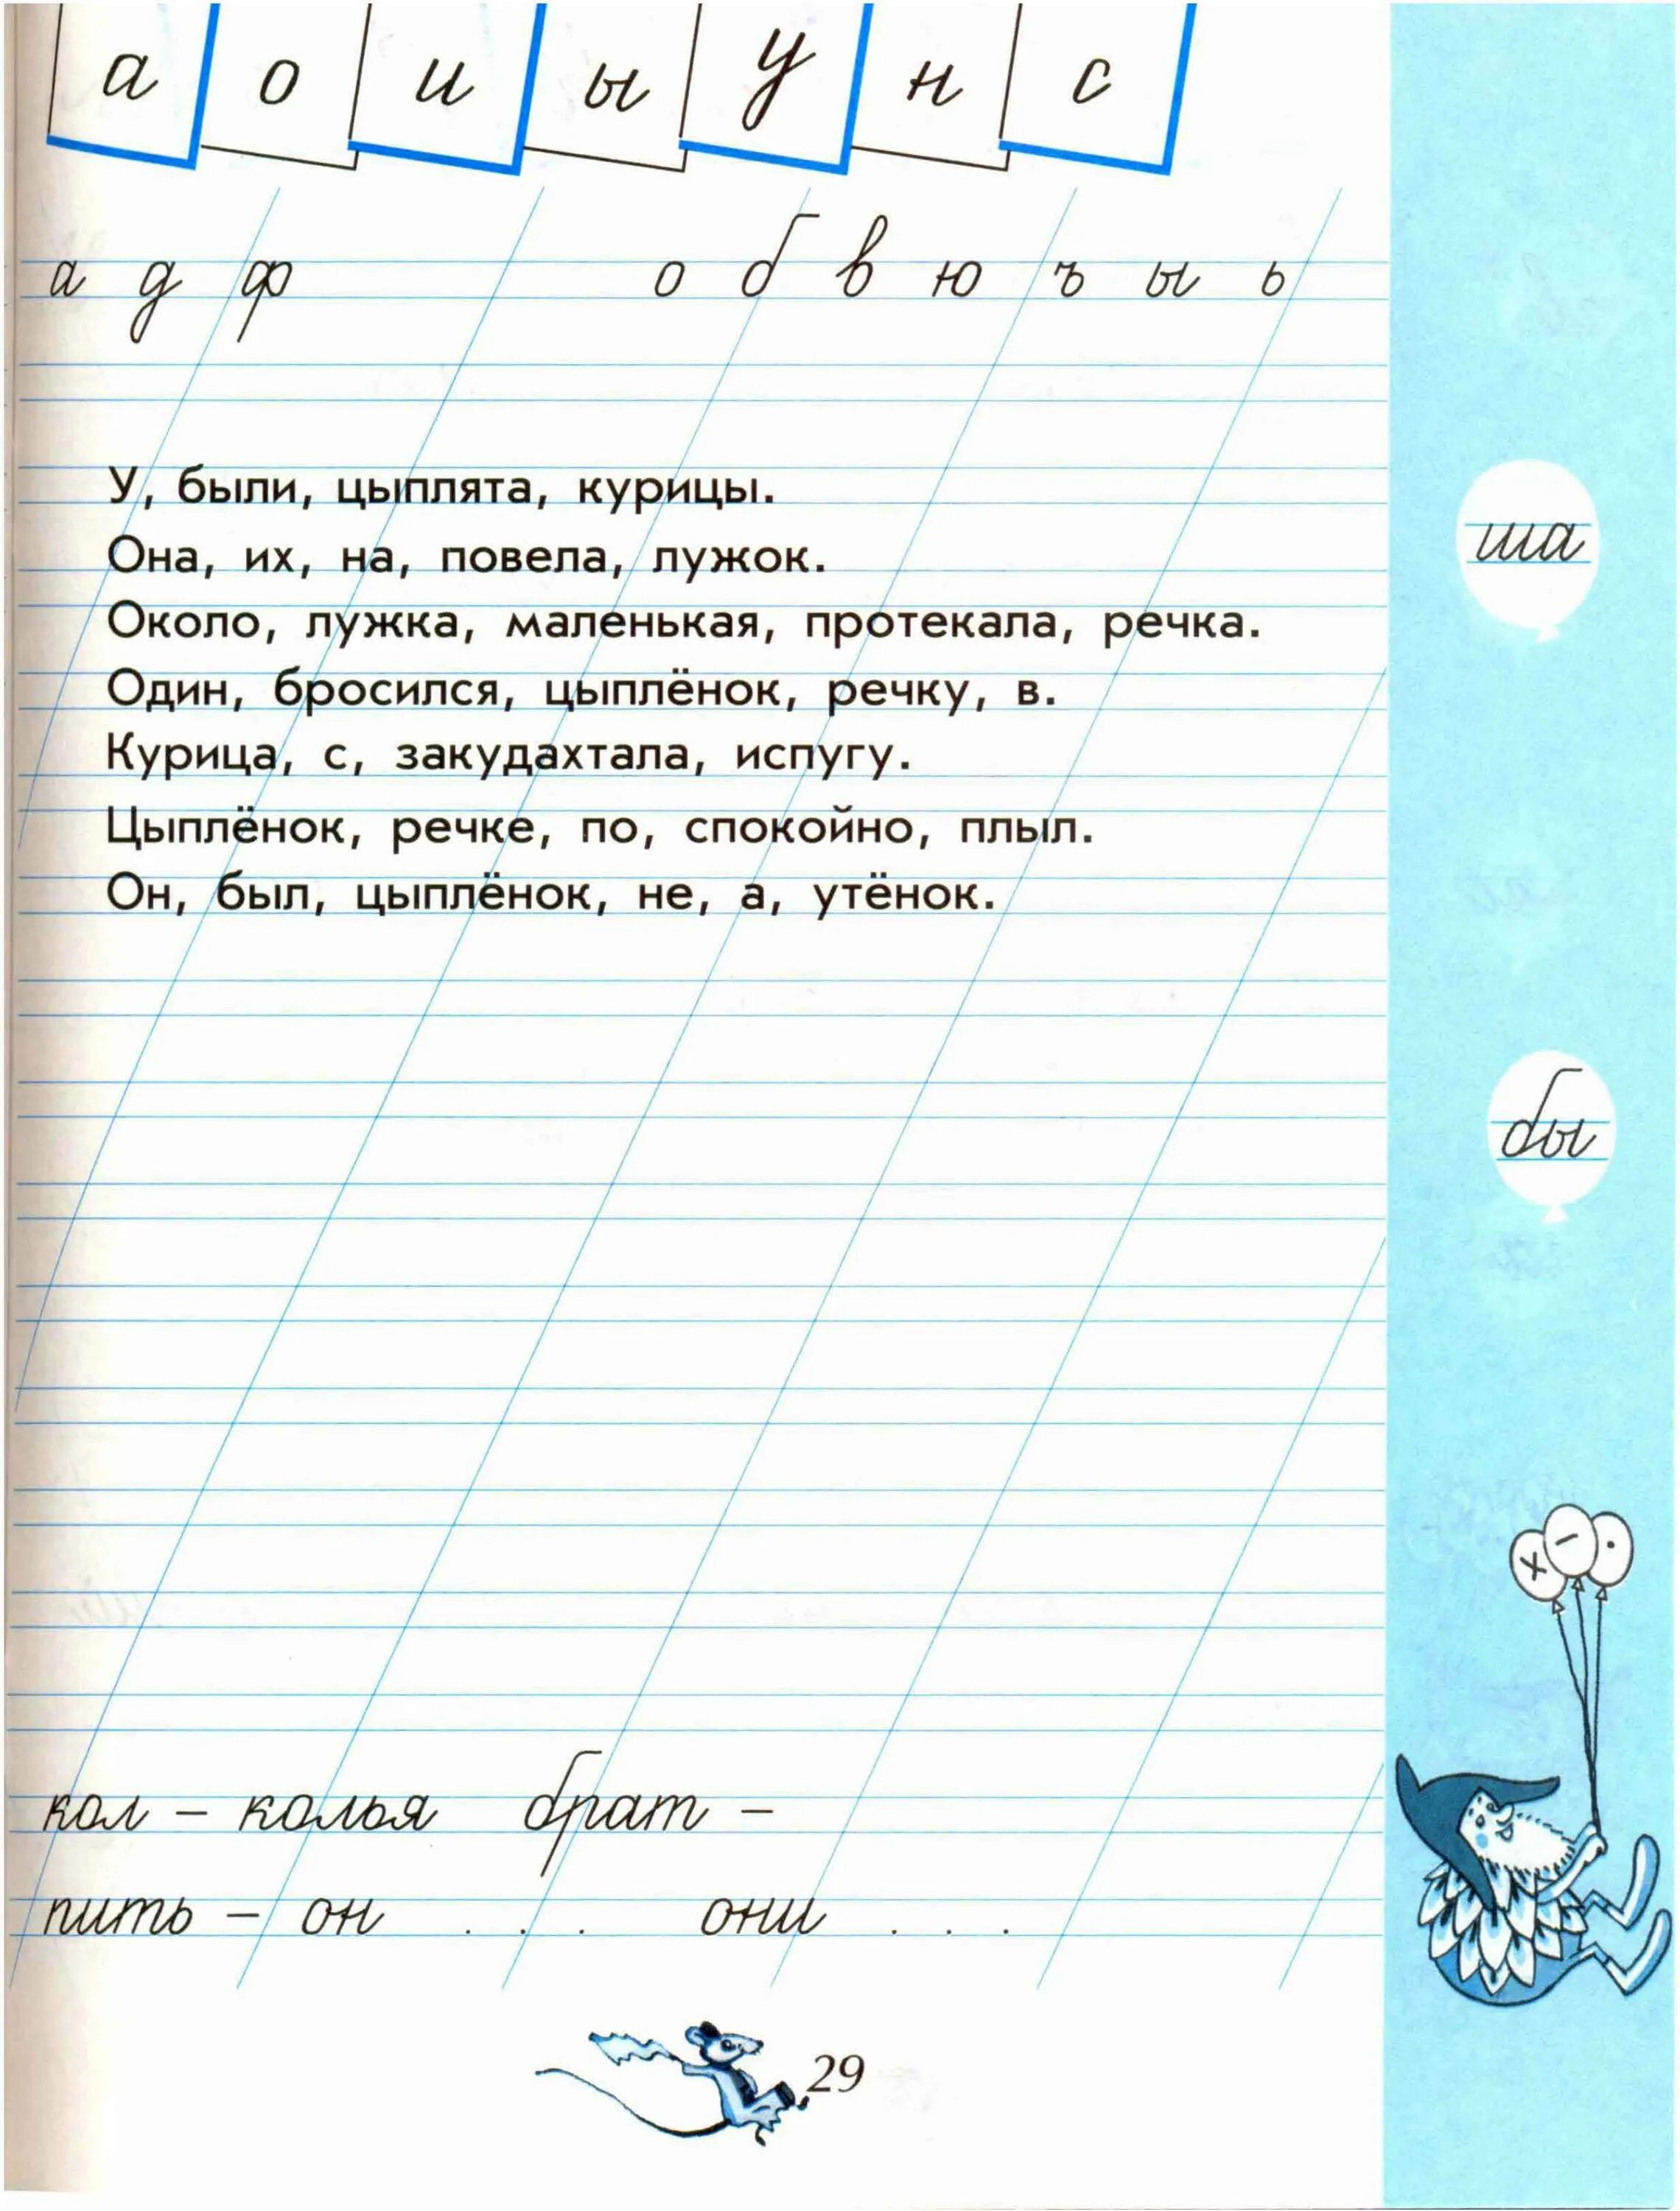 а о и ы у н с
а д ф о б в ю ъ ы ь
У, были, цыплята, курицы.
Она, их, на, повела, лужок.
Около, лужка, маленькая, протекала, речка.
Один, бросился, цыплёнок, речку, в.
Курица, с, закудахтала, испугу.
Цыплёнок, речке, по, спокойно, плыл.
Он, был, цыплёнок, не, а, утёнок.
кол – колья брат –
пить – он . . . они . . .
29
ша
бы
× – ·